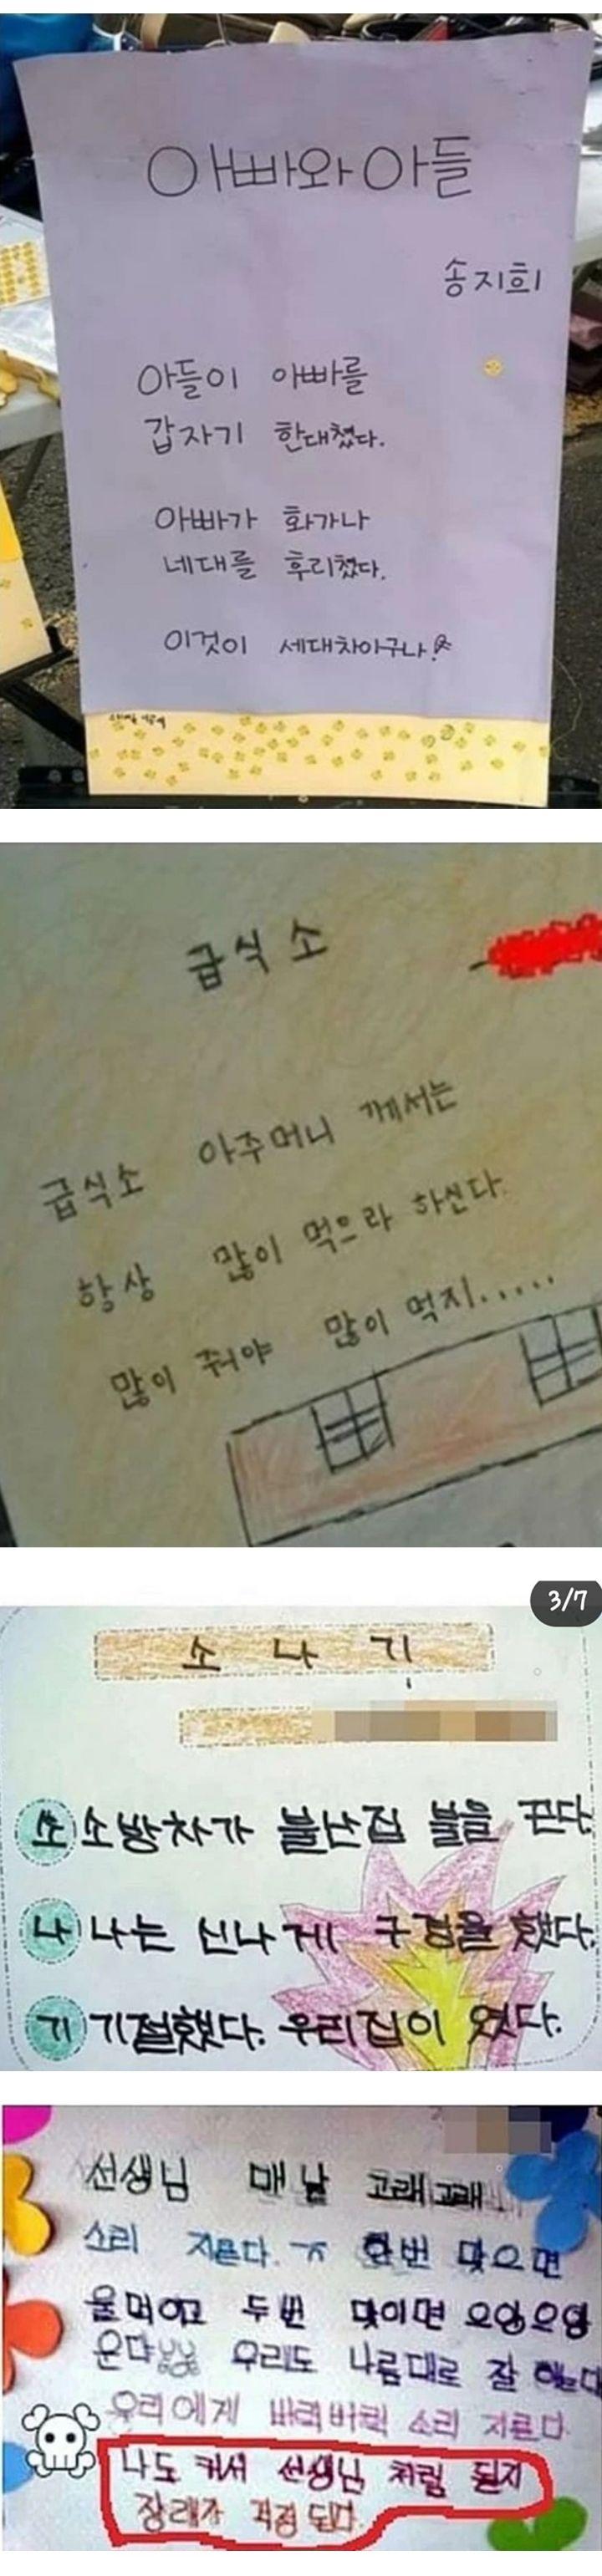 아빠와 아들
송지희
아들이 아빠를
갑자기 한대쳤다.
아빠가 화가나
네대를 후리쳤다.
이것이 세대차이구나!
급식소
급식소 아주머니 께서는
항상 많이 먹으라 하신다.
많이 줘야 많이 먹지.....
3/7
소나기
소 소방차가 불난집 불을 끈다.
나 나는 신나게 구경을 했다.
기 기절했다. 우리집이 였다.
선생님 매날 고래고래
소리 지른다. ㅠ 한번 맞으면
울먹이고 두번 맞이면 으앙으앙
운다 우리도 나름대로 잘 하는데
우리에게 버럭버럭 소리 지른다.
나도 커서 선생님 처럼 될지
장래가 걱정 된다.